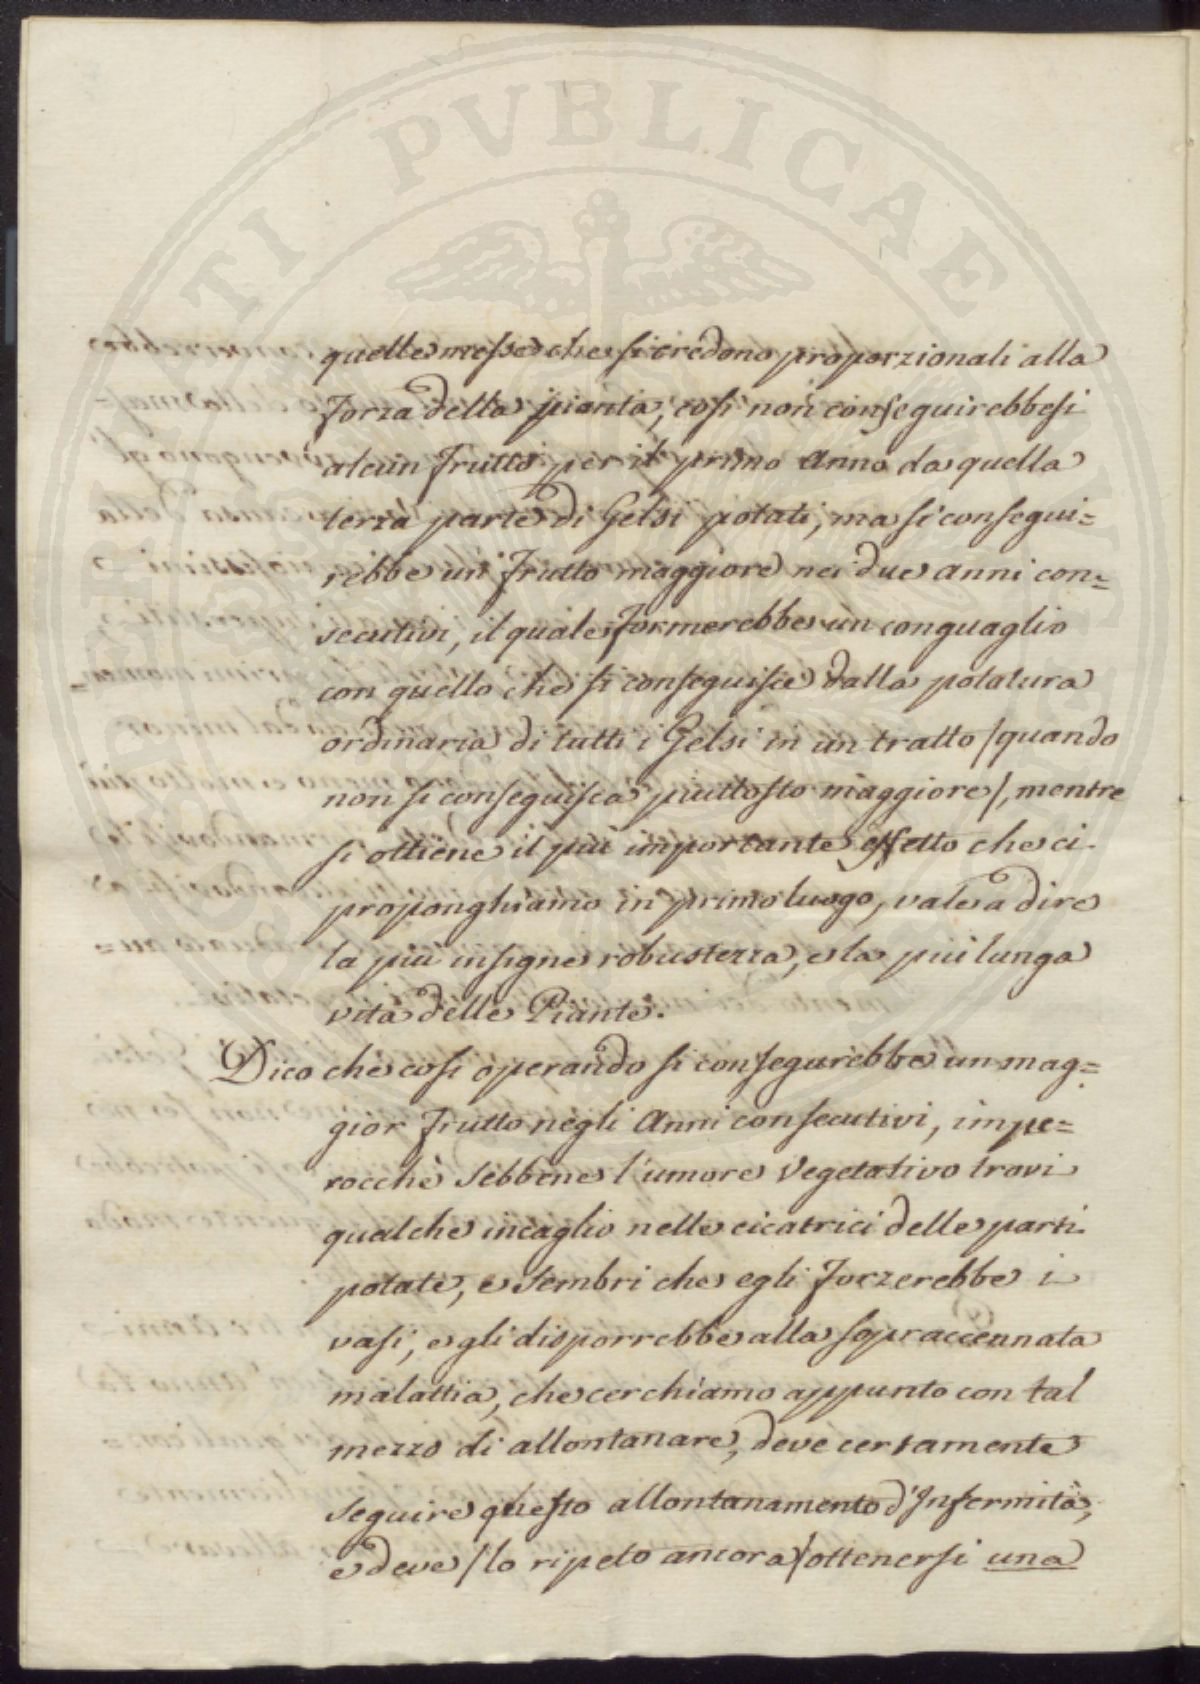 PROSPERITATI PVBLICAE AVGENDAE
quelle messe che si credono proporzionali alla
forza della pianta, così non conseguirebbesi
alcun frutto per il primo Anno da quella
terza parte di Gelsi potati, ma si consegui=
rebbe un frutto maggiore nei due anni con=
secutivi, il quale formerebbe un conguaglio
con quello che si conseguisce dalla potatura
ordinaria di tutti i Gelsi in un tratto /quando
non si conseguisca piuttosto maggiore/, mentre
si ottiene il più importante effetto che ci
proponghiamo in primo luogo, vale a dire
la più insigne robustezza, e la più lunga
vita delle Piante.
Dico che così operando si conseguirebbe un mag=
gior frutto negli Anni consecutivi, impe=
rocchè sebbene l'umore Vegetativo trovi
qualche incaglio nelle cicatrici delle parti
potate, e sembri che egli forzerebbe i
vasi, e gli disporrebbe alla sopraccennata
malattia, che cerchiamo appunto con tal
mezzo di allontanare, deve certamente
seguire questo allontanamento d'Infermità,
e deve /lo ripeto ancora/ ottenersi una